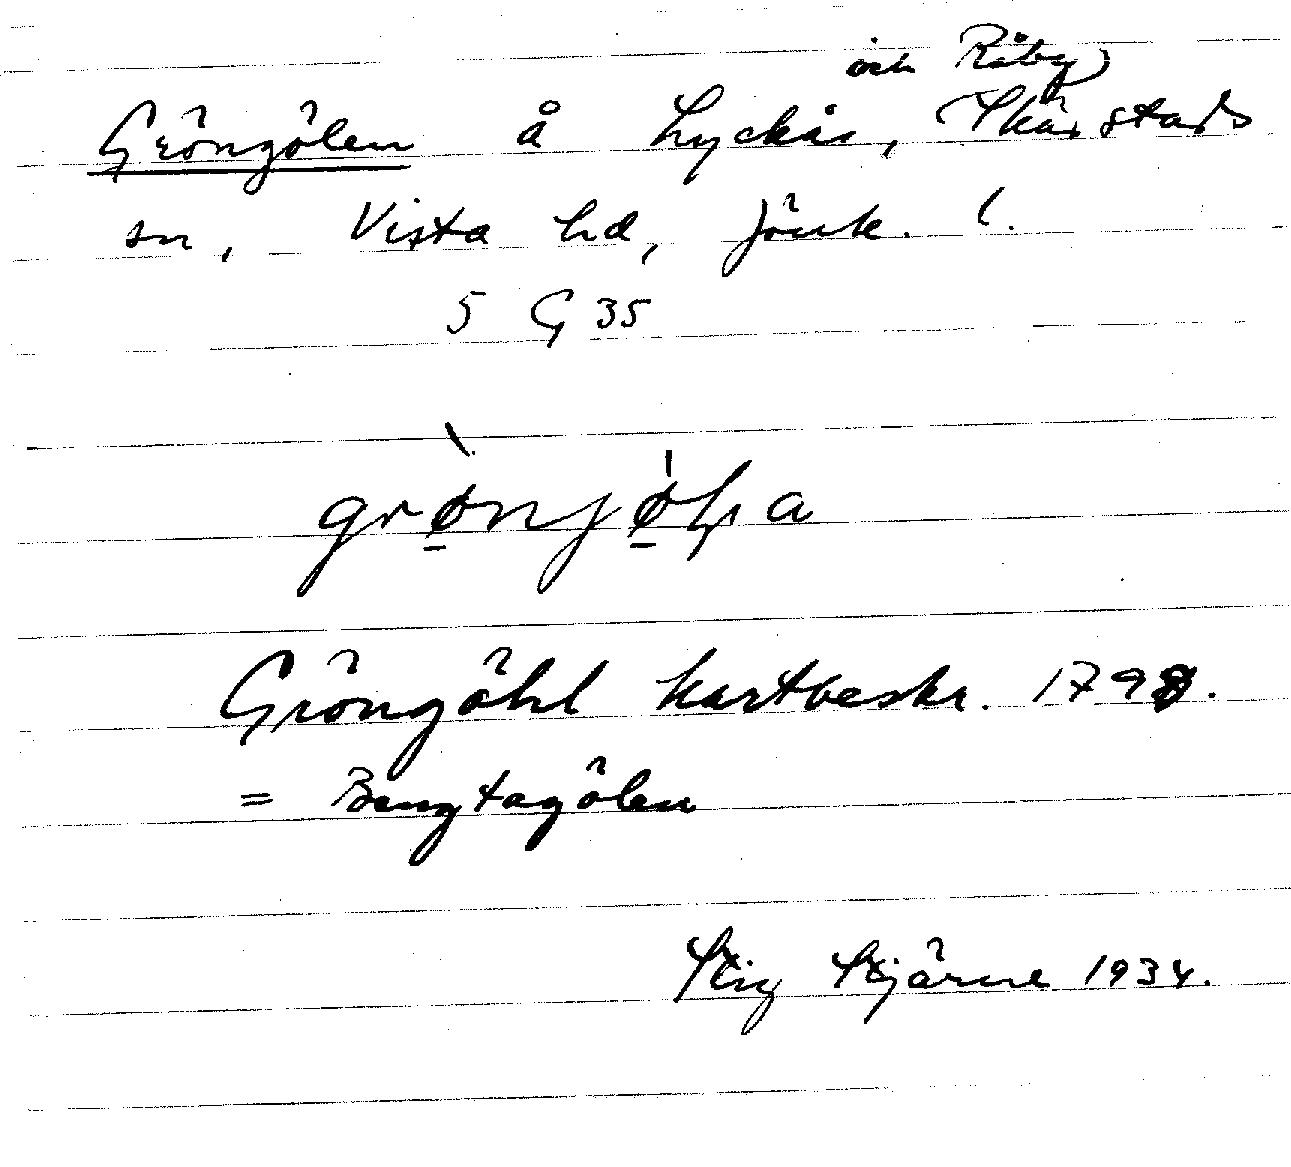 och Råby)
Gröngölen å Lyckås, Skärstads
sn, Vista hd, Jönk. l.
5 G 35
Gröngöhl kartbeskr. 1798.
= Bengtagölen
Stig Stjärne 1934.